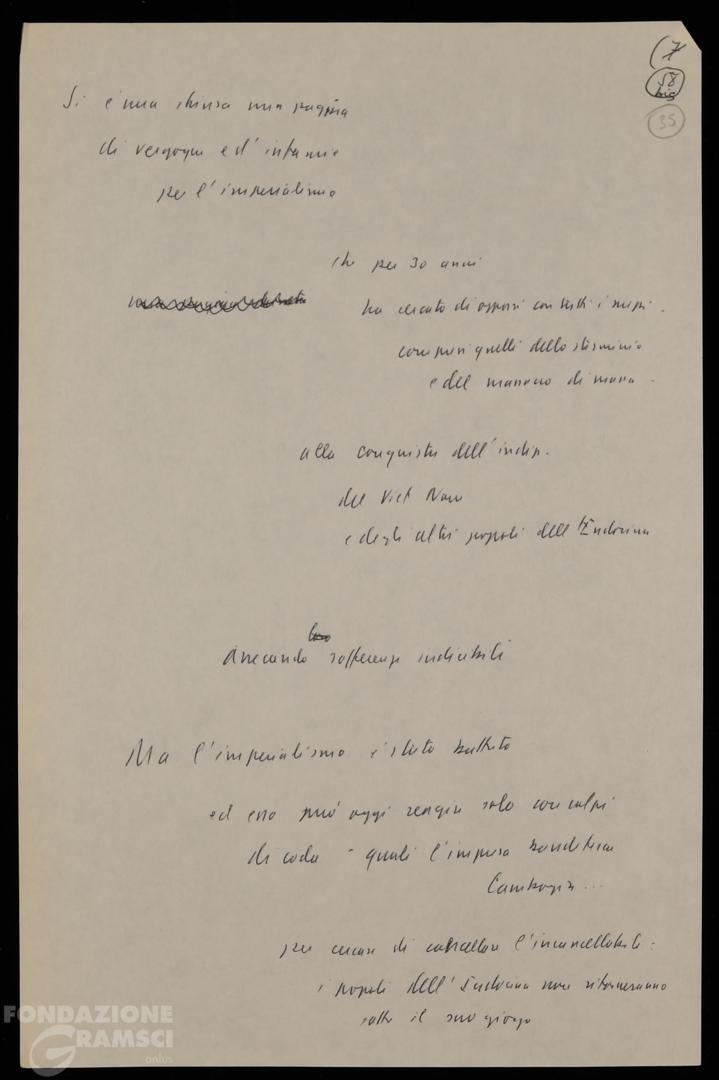 7
58
bis
35
Si è ora chiusa una pagina
di vergogna e d'infamie
per l'imperialismo
che per 30 anni
ha cercato di opporsi con tutti i mezzi
compresi quelli dello sterminio
e del massacro di massa
alla conquista dell'indip.
del Viet Nam
e degli altri popoli dell'Indocina
loro
Arrecando sofferenze indicibili
Ma l'imperialismo è stato battuto
ed esso può oggi reagire solo con colpi
di coda - quali l'impresa banditesca
Cambogia...
per cercare di cancellare l'incancellabile:
i popoli dell'Indocina non ritorneranno
sotto il suo giogo
FONDAZIONE
GRAMSCI
onlus